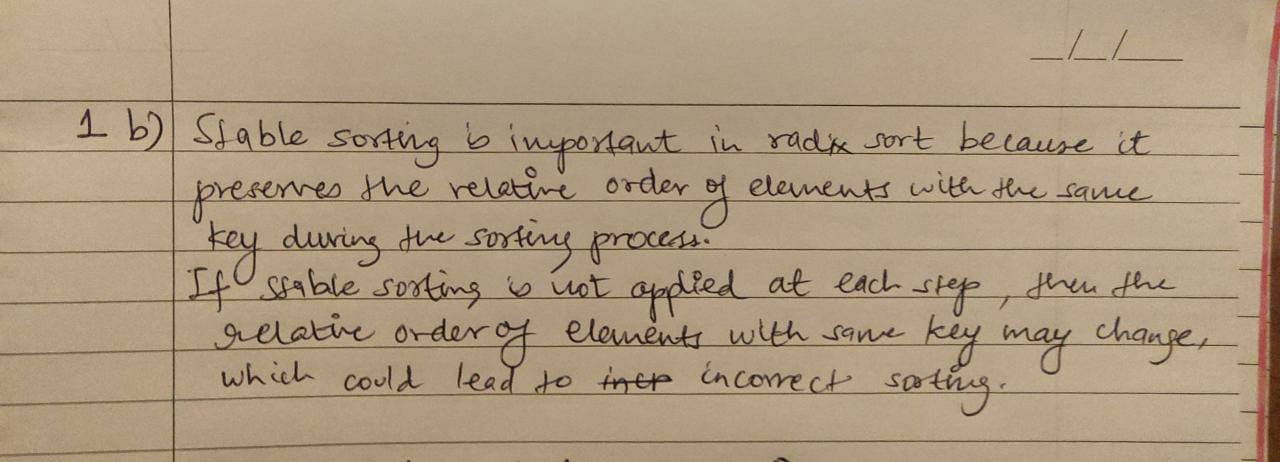 _/_/_
1 b) Stable sorting is important in radix sort because it
preserves the relative order of elements with the same
key during the sorting process.
If stable sorting is not applied at each step, then the
relative order of elements with same key may change,
which could lead to incr incorrect sorting.